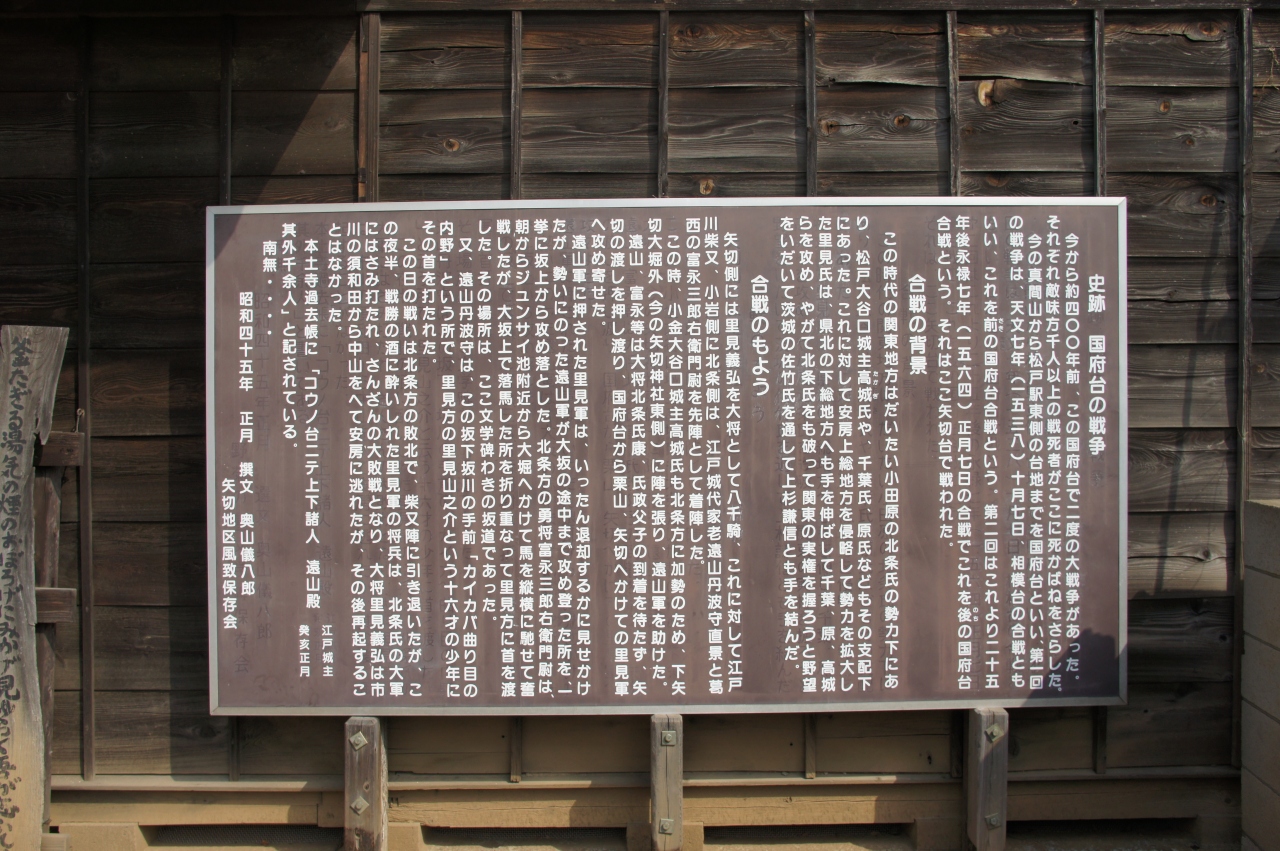 史跡　国府台の戦争
今から約四〇〇年前、この国府台で二度の大戦争があった。
それぞれ敵味方千人以上の戦死者がここに死かばねをさらした。
今の真間山から松戸駅東側の台地までを国府台といい、第一回
の戦争は、天文七年（一五三八）十月七日、相模台の合戦とも
いい、これを前の国府台合戦という。第二回はこれより二十五
年後永禄七年（一五六四）正月七日の合戦でこれを後の国府台
合戦という。それはここ矢切台で戦われた。
合戦の背景
この時代の関東地方はだいたい小田原の北条氏の勢力下にあ
り、松戸大谷口城主高城氏や、千葉氏、原氏などもその支配下
にあった。これに対して安房上総地方を侵略して勢力を拡大し
た里見氏は、県北の下総地方へも手を伸ばして千葉、原、高城
らを攻め、やがて北条氏をも破って関東の実権を握ろうと野望
をいだいて茨城の佐竹氏を通して上杉謙信とも手を結んだ。
合戦のもよう
矢切側には里見義弘を大将として八千騎、これに対して江戸
川柴又、小岩側に北条側は、江戸城代家老遠山丹波守直景と葛
西の富永三郎右衛門尉を先陣として着陣した。
この時、小金大谷口城主高城氏も北条方に加勢のため、下矢
切大堀外（今の矢切神社東側）に陣を張り、遠山軍を助けた。
遠山、富永等は大将北条氏康、氏政父子の到着を待たず、矢
切の渡しを押し渡り、国府台から栗山、矢切へかけての里見軍
へ攻め寄せた。
遠山軍に押された里見軍は、いったん退却するかに見せかけ
たが、勢いにのった遠山軍が大坂の途中まで攻め登った所を、一
挙に坂上から攻め落とした。北条方の勇将富永三郎右衛門尉は、
朝からジュンサイ池附近から大堀へかけて馬を縦横に馳せて奮
戦したが、大坂上で落馬した所を折り重なって里見方に首を渡
した。その場所は、ここ文学碑わきの坂道であった。
又、遠山丹波守は、この坂下坂川の手前「カイカバ曲り目の
内野」という所で、里見方の里見山之介という十六才の少年に
その首を打たれた。
この日の戦いは北条方の敗北で、柴又陣に引き退いたが、こ
の夜半、戦勝の酒に酔いしれた里見軍の将兵は、北条氏の大軍
にはさみ打たれ、さんざんの大敗戦となり、大将里見義弘は市
川の須和田から中山をへて安房に逃れたが、その後再起するこ
とはなかった。
本土寺過去帳に「コウノ台ニテ上下諸人　遠山殿　江戸城主　癸亥正月
其外千余人」と記されている。
南無・・・・
昭和四十五年　正月　撰文　奥山儀八郎
矢切地区風致保存会